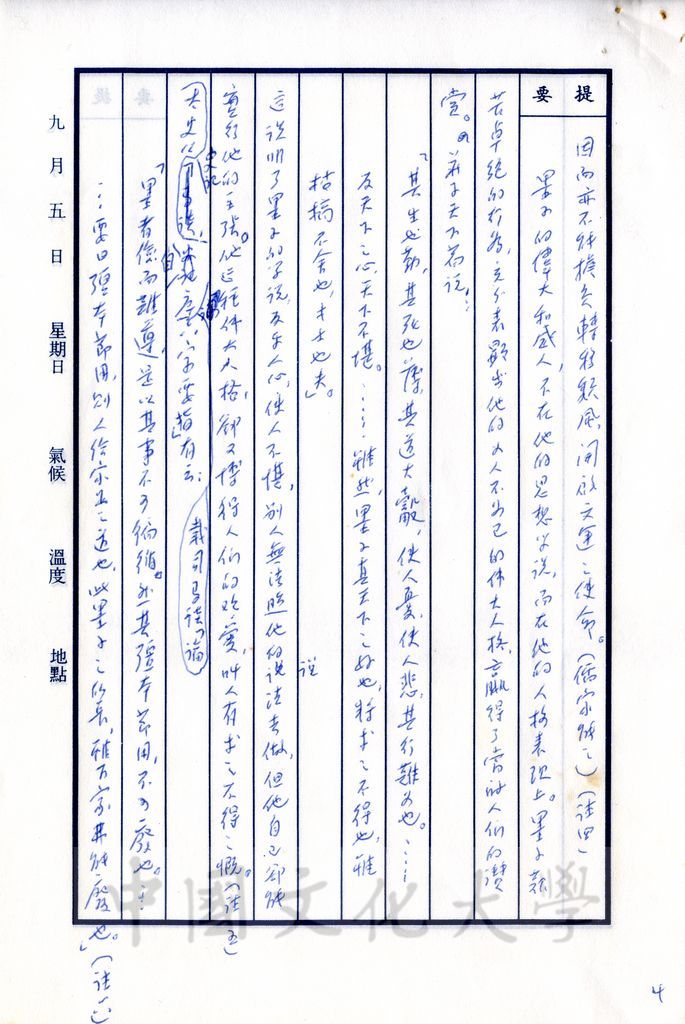 提
要
因而亦不能擔負轉移頹風,開啟文運之使命。(儒家能之)(註四)
墨子的偉大和感人,不在他的思想學說,而在他的人格表現上。墨子艱
苦卓絕的行為,充分表顯出他的為人不為己的偉大人格,贏得了當時人們的讚
賞。莊子天下篇說:
「其生也勤,其死也薄,其道大觳,使人憂,使人悲,其行難為也。……
反天下之心,天下不堪。……雖然,墨子真天下之好也,將求之不得也,雖
枯槁不舍也,才士也夫。」
這說明了墨子的學說,反乎人心,使人不堪,別人無法照他的說法去做,但他自己卻能
實行他的主張。他這種偉大人格,卻又博得人們的欣愛,叫人有求之不得之慨。(註五)
太史公自序六家要指有云:
史記
載司馬談「論
「墨者儉而難遵,是以其事不可徧循。然其彊本節用,不可廢也。…
…要曰彊本節用,則人給家足之道也,此墨子之所長,雖百家弗能廢也。」(註六)
九月五日 星期日 氣候 溫度 地點
中國文化大學
4